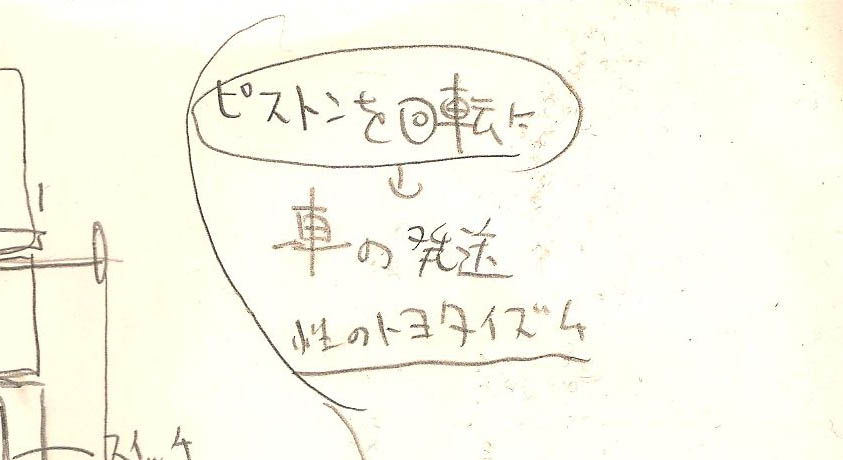 ピストンを回転に
車の発送
性のトヨタイズム
スイッチ